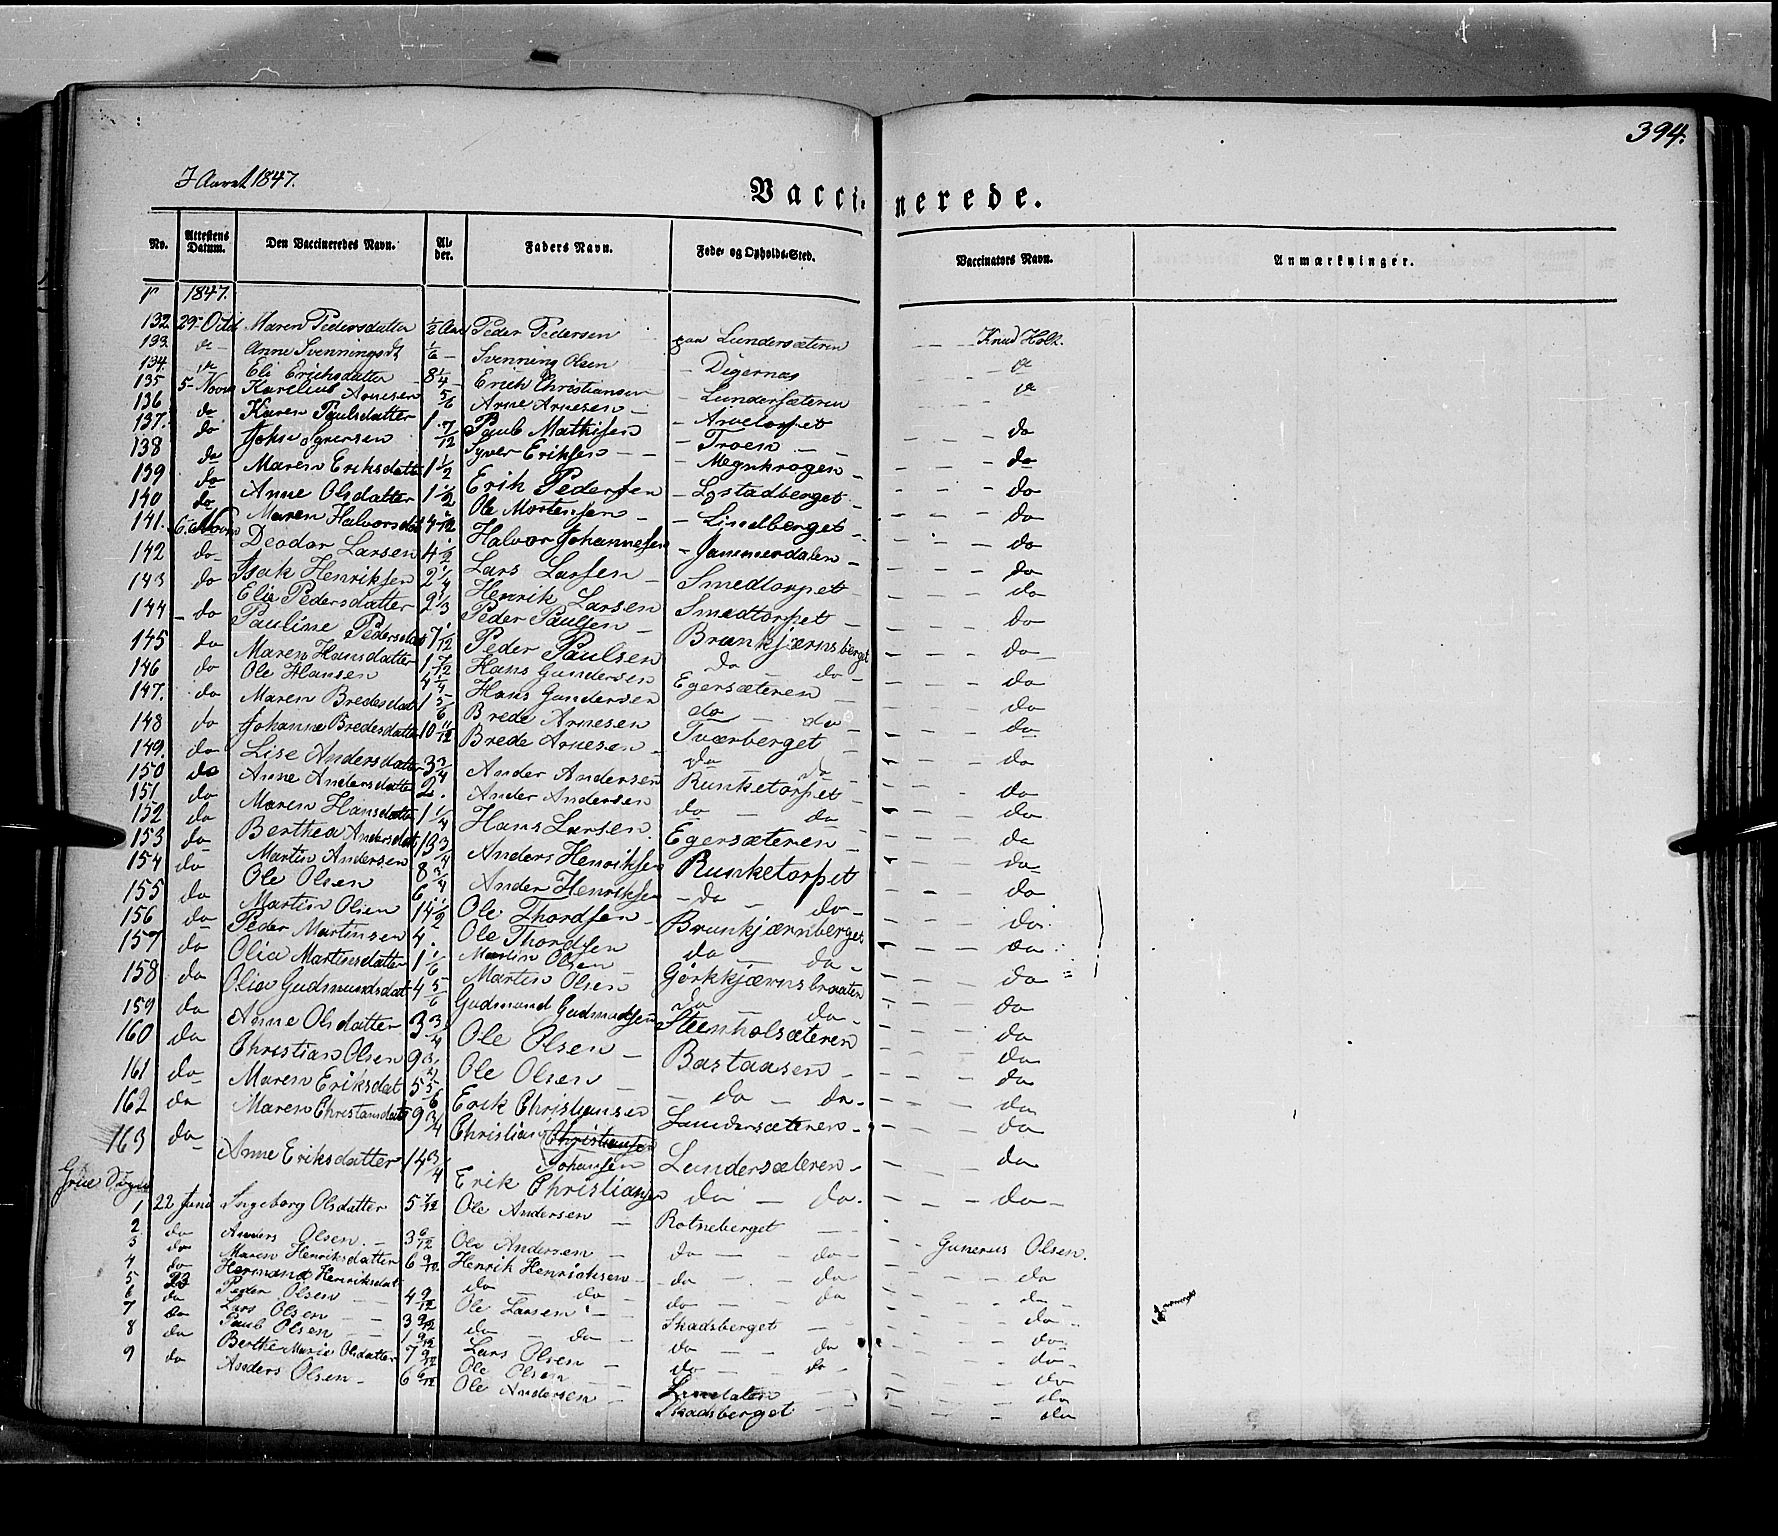 394.
I Aaret 1847.
Vaccinerede.
No. Attestens Datum. Den Vaccineredes Navn. Alder. Faders Navn. Føde- og Opholds-Sted. Vaccinators Navn. Anmærkninger.
1847.
132 29 Octb Maren Pedersdatter 1/2 Aar Peder Pedersen paa Lundersæteren Knud Holt.
133. Anne Svenningsdt 1/6 Svenning Olsen - Digernæs
134. Eli Erichsdatter 8 1/4 Erich Christiansen - Lundersæteren
135 5 Novm Karelius Arnesen 5/6 Arne Arnesen - Arvetorpet do
136 do Karen Paulsdatter 1 7/12 Paul Mathisen - Troen do
137. do Johs Syversen Syver Eriksen - Megnkrogen do
138 do Maren Eriksdatter 1 1/2 Erik Pedersen - Løstadberget do
139 do Anne Olsdatter 1 1/2 Ole Mortensen - Lindberget do
140 do Maren Halvorsdat 4 1/12 Halvor Johannesen - Jammerdalen do
141. 6 Novm Deodor Larsen 4 1/2 Lars Larsen Smedtorpet do
142 do Isak Henriksen 2 1/4 Henrik Larsen Smedtorpet do
143 do Elie Pedersdatter 2 1/3 Peder Paulsen Brunkjærnsberget do
144 do Pauline Pedersdat 7 1/12 Peder Paulsen do do do
145 do Maren Hansdatter 1 7/12 Hans Gundersen Egersæteren do
146 do Ole Hansen 4 1/4 Hans Gundersen do do do
147. do Maren Bredesdat 1 5/6 Brede Arnesen Tværberget do
148 do Johanne Bredesdatter 10 11/12 Brede Arnesen do do do
149. do Lise Andersdatter 3 3/4 Ander Andersen Runketorpet do
150 do Anne Andersdatter 2. Ander Andersen do do do
151 do Maren Hansdatter 1 1/4 Hans Larsen Egersæteren do
152 do Berthea Andersdat 13 3/4 Anders Henriksen Runketorpet do
153 do Martin Andersen 8 3/4 Ander Henriksen do do do
154 do Ole Olsen 6 Ole Thordsen Brunkjærnberget do
155 do Martin Olsen 14 1/2 Ole Thordsen do do do
156 do Peder Martinsen 4. Martin Olsen Gørkkjærnsbraaten do
157 do Olia Martinsdatter 1 1/6 Martin Olsen do do do
158 do Olia Gudmundsdat 4 5/6 Gudmund Gudmundsen Steenholsæteren do
159 do Anne Olsdatter 3 3/4 Ole Olsen Bastaasen do
160 do Christian Olsen 9 3/4 Ole Olsen do do do
161 do Maren Eriksdat 5 5/6 Erik Christiansen Lundersæteren do
162 do Maren Christansdatt 9 3/4 Christian Christiansen Johansen Lundersæteren do
163 do Anne Eriksdatter 14 3/4 Erik Christiansen do do do
Grue Sogn
1 22 Juni Ingeborg Olsdatter 5 7/12 Ole Andersen Rotneberget Gunerus Olsen.
2. do Anders Olsen 3 6/12 Ole Andersen do do do
3 do Maren Henriksdatter 6 9/12 Henrik Henrichsen do do do
4 do Hermana Henriksdat do do do do do
5 23 Peder Olsen 4 9/12 Ole Larsen Skadsberget do
6 do Lars Olsen 3 9/12 do do do do do
7 do Paul Olsen 1 9/12 Lars Olsen do do do
8 do Berthe Marie Olsdatter 7 9/12 Ole Olsen Linedalen do
9 do Anders Olsen 6 6/12 Ole Andersen Skadsberget do